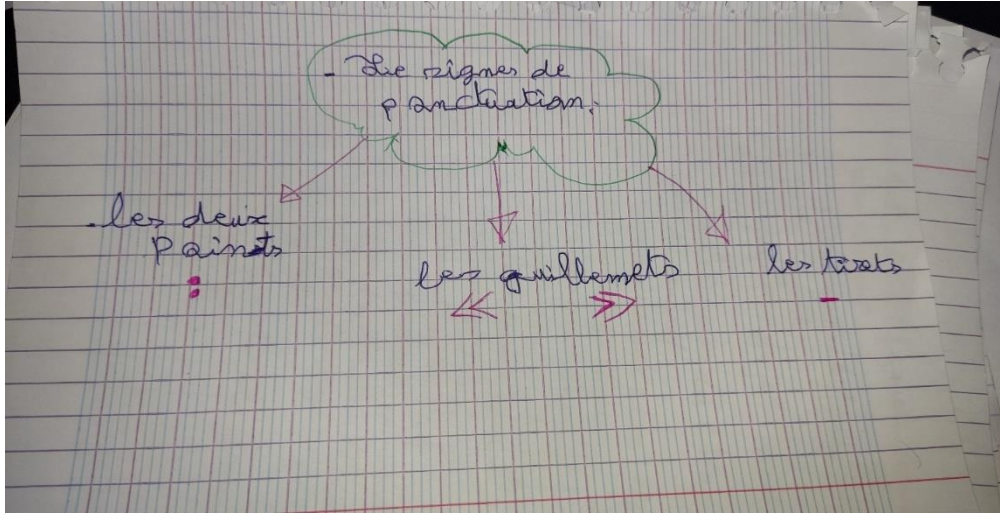 - Le signes de
ponctuation.
- les deux
points
:
les guillemets
« »
les tirets
-